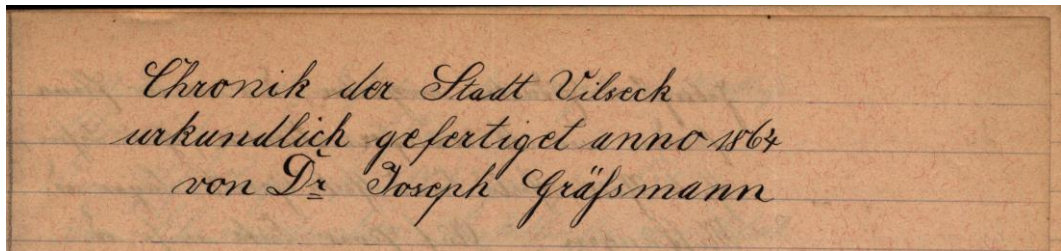 Chronik der Stadt Vilseck
urkundlich gefertiget anno 1864
von Dr Joseph Gräſsmann